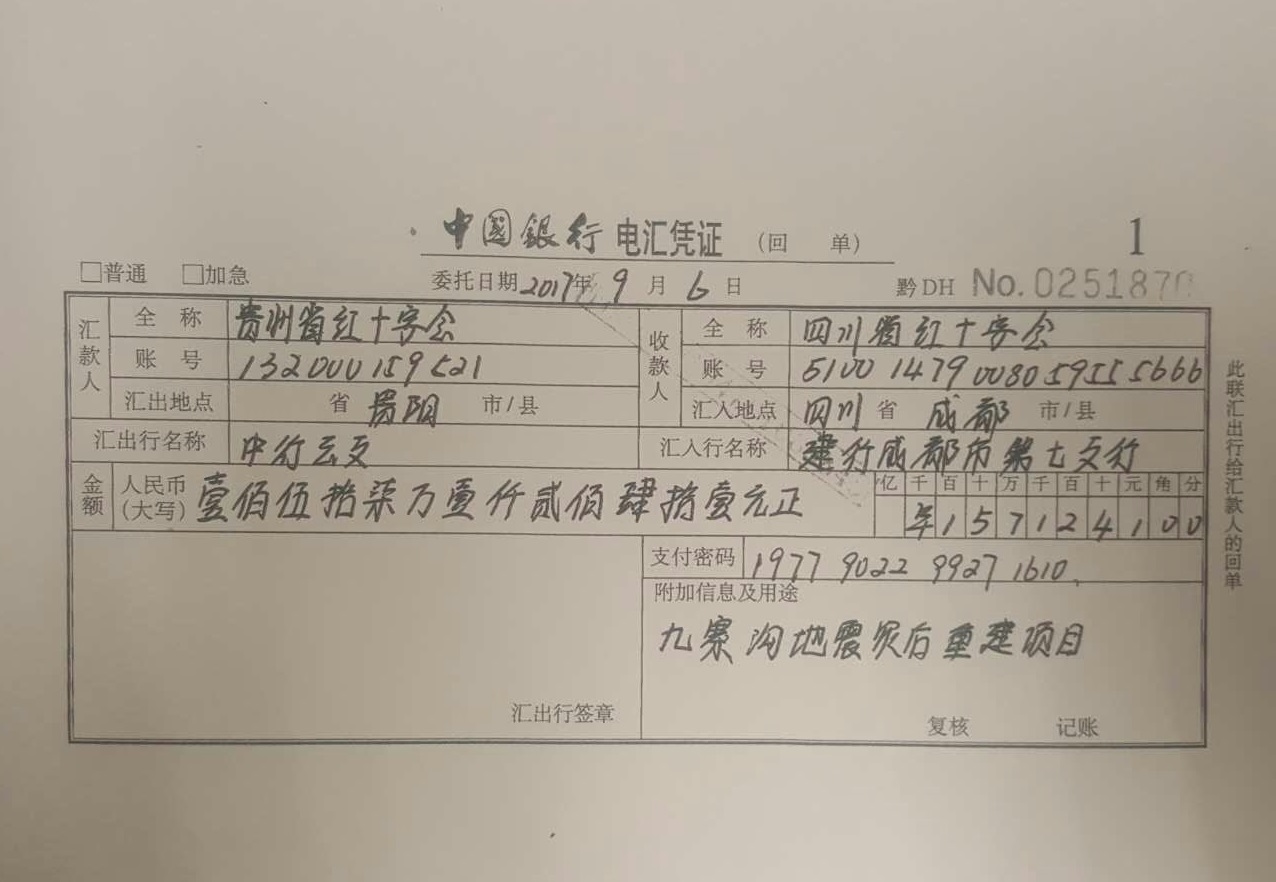 中國銀行 电汇凭证 (回 单) 1
□普通 □加急 委托日期 2017年 9 月 6 日 黔DH No. 0251870
汇款人 全 称 贵州省红十字会 收款人 全 称 四川省红十字会
账 号 132000159521 账 号 51001479008059555666
汇出地点 省 贵阳 市/县 汇入地点 四川 省 成都 市/县
汇出行名称 中行云支 汇入行名称 建行成都市第七支行
金额 人民币(大写) 壹佰伍拾柒万壹仟贰佰肆拾壹元正 亿 千 百 十 万 千 百 十 元 角 分
1 5 7 1 2 4 1 0 0
支付密码 1977 9022 9927 1610
附加信息及用途
九寨沟地震灾后重建项目
汇出行签章 复核 记账
此联汇出行给汇款人的回单